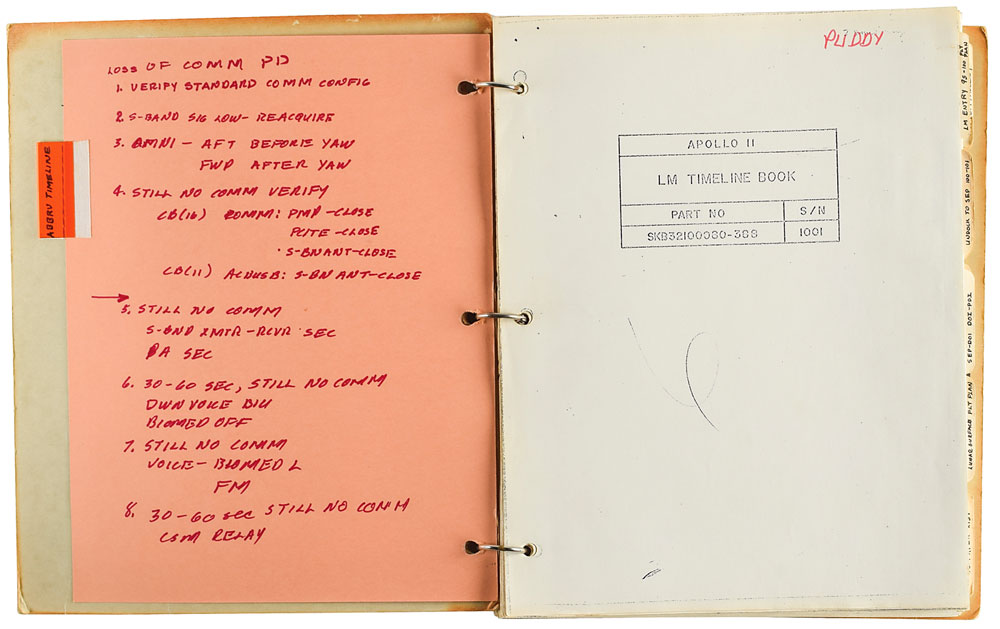 ABBRV TIMELINE
LOSS OF COMM PD
1. VERIFY STANDARD COMM CONFIG
2. S-BAND SIG LOW - REACQUIRE
3. OMNI - AFT BEFORE YAW
FWD AFTER YAW
4. STILL NO COMM VERIFY
CB(16) COMM: PMP - CLOSE
- CLOSE
S-BN ANT-CLOSE
CB(11) S-BN ANT-CLOSE
5. STILL NO COMM
S-BND XMTR-RCVR SEC
PA SEC
6. 30-60 SEC, STILL NO COMM
DWN VOICE BU
BIOMED OFF
7. STILL NO COMM
VOICE - BIOMED L
FM
8. 30-60 SEC STILL NO COMM
CSM RELAY
PUDDY
APOLLO 11
LM TIMELINE BOOK
PART NO S/N
SKB32100080-388 1001
LM ENTRY 95-100 FLT PLAN
UNDOCK TO SEP 100-101
SEP-DOI DOI-PDI
LUNAR SURFACE FLT PLAN